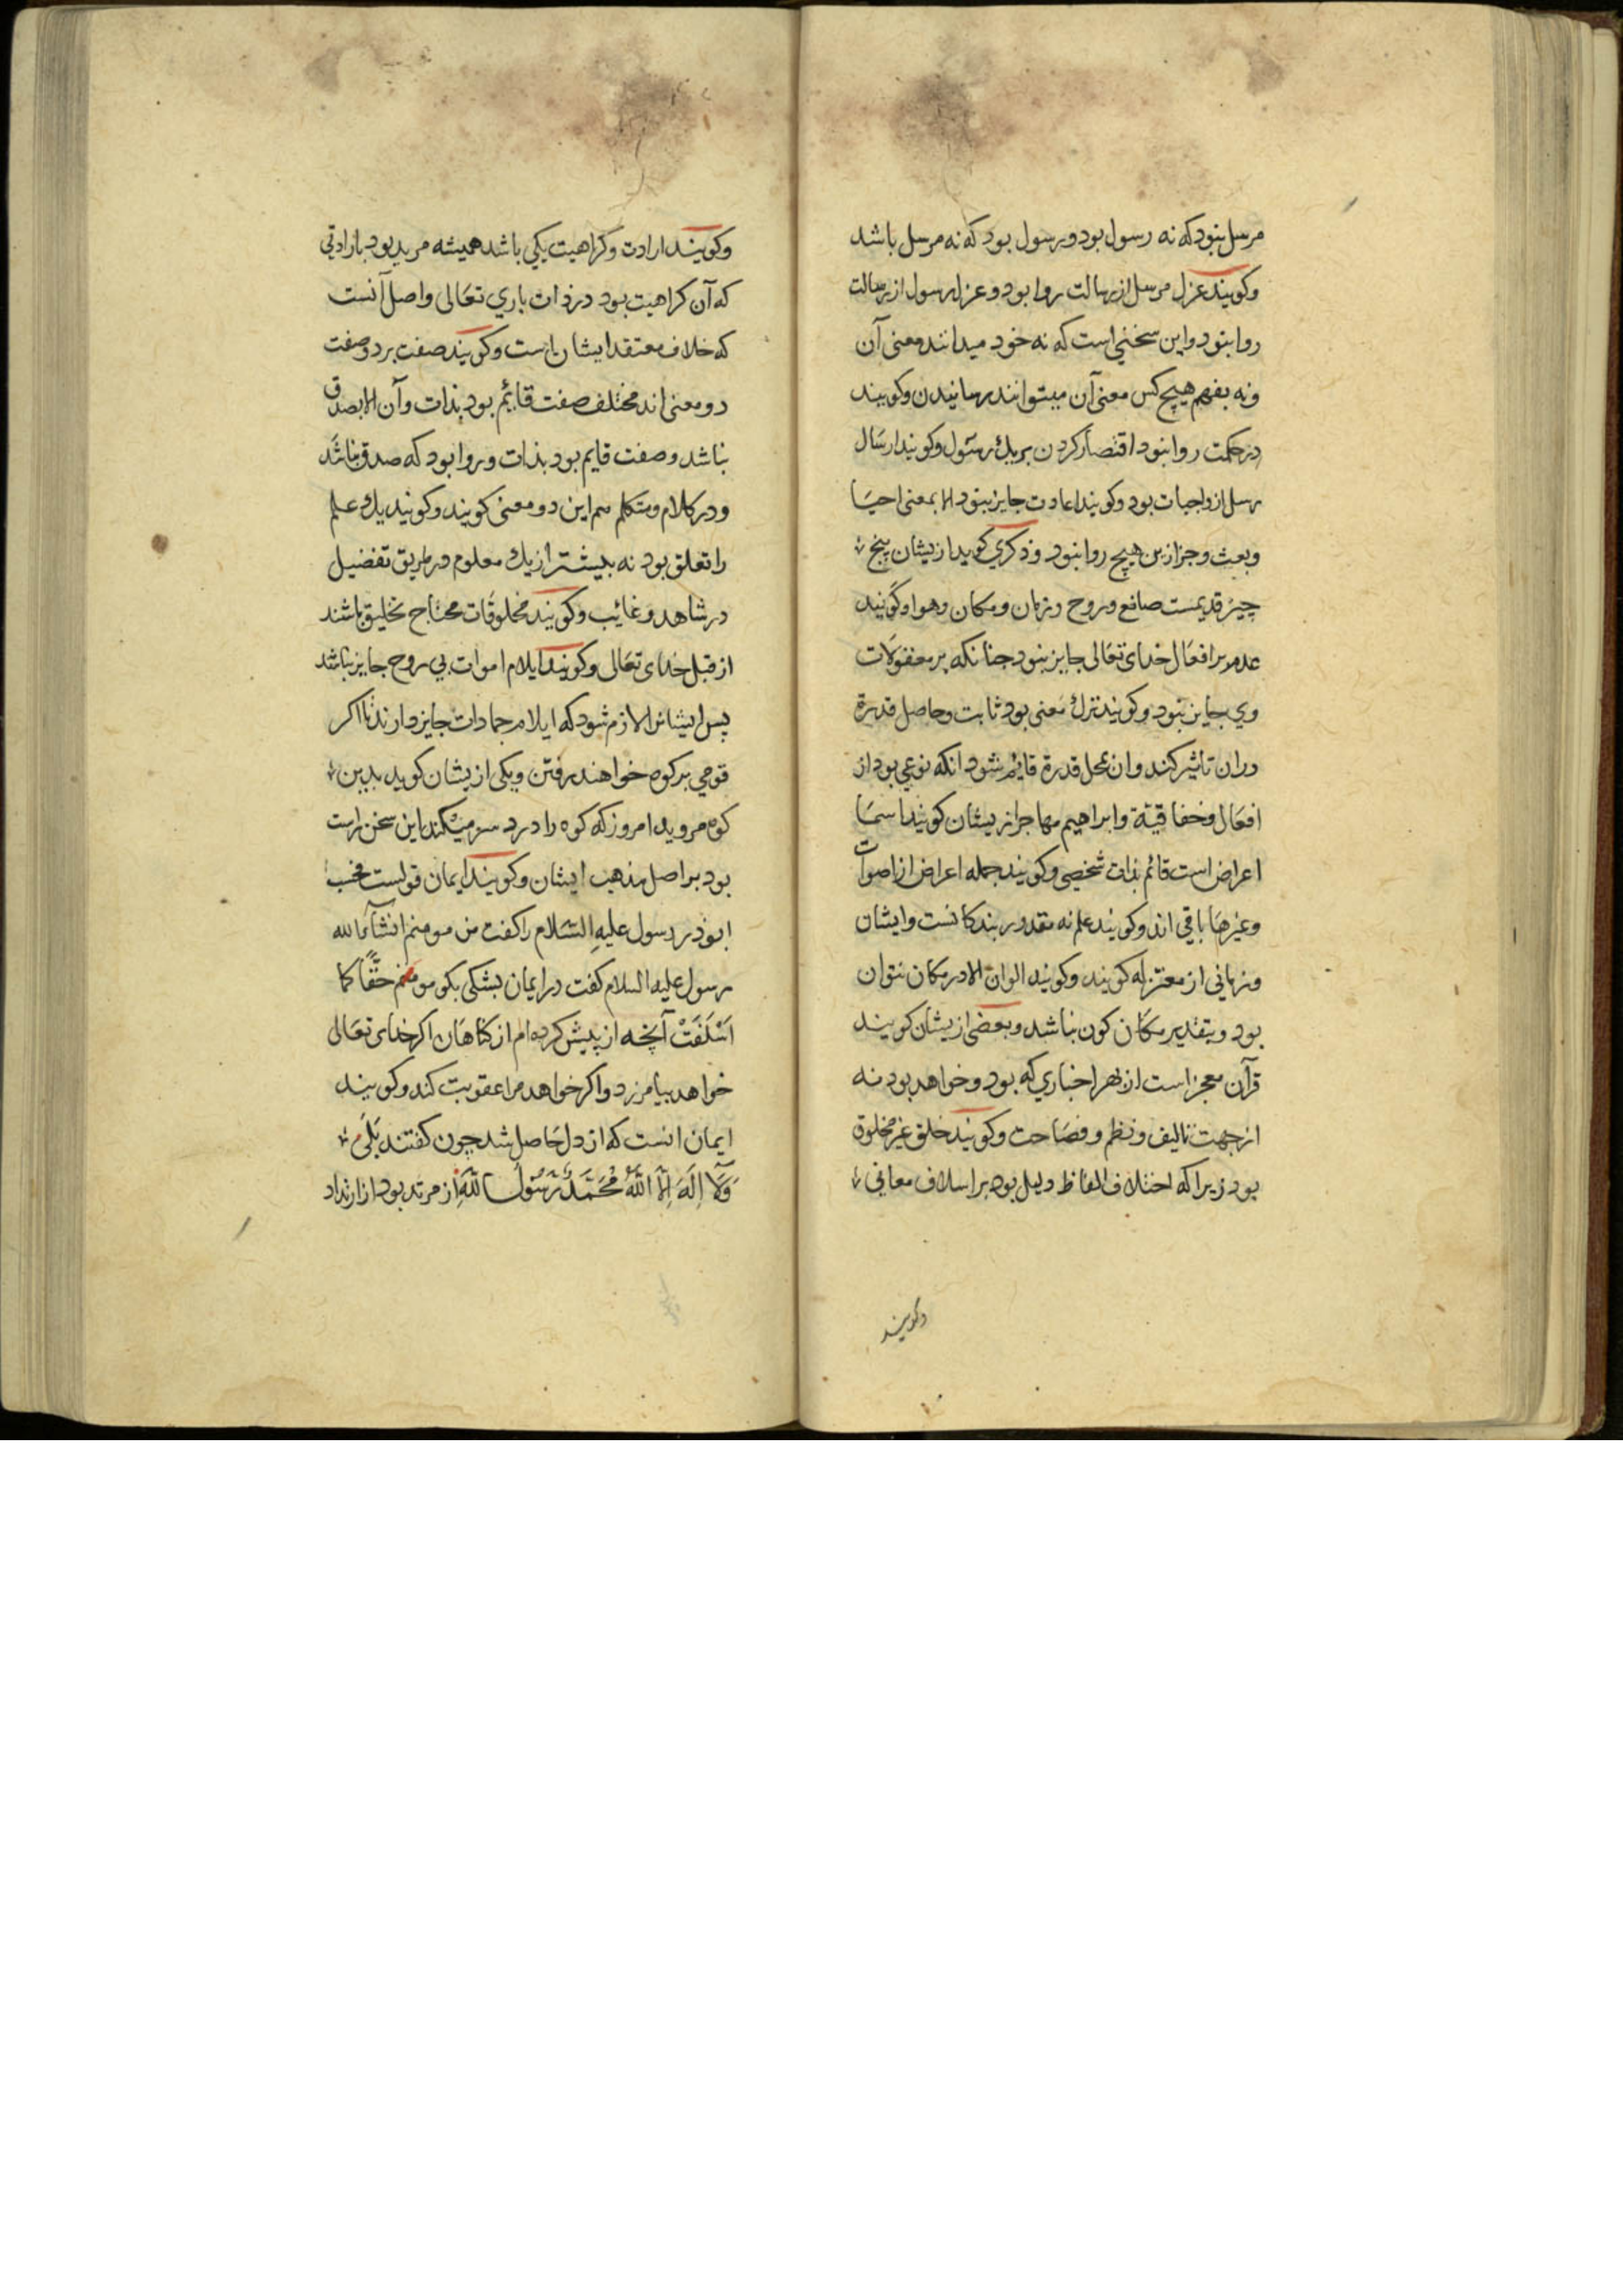 مرسل نبود که نه رسول بود و رسول بود که نه مرسل باشد
وکویند عزل مرسل از رسالت روا بود و عزل رسول از رسالت
روا نبود و این سخنی است که نه خود میدانند معنی آن
ونه بفهم هیچ کس معنی آن میتوانند رسانیدن وکویند
در حکمت روا نبود اقتصار کردن بر یك رسول وکویند ارسال
رسل از واجبات بود وکویند اعادت جایز نبود الا بمعنی احیا
وبعث وجز ازین هیچ روا نبود وذکری کوید ازیشان پنج
چیز قدیمست صانع وروح وزمان ومکان وهوا وکویند
عدم بر افعال خدای تعالی جایز نبود جنانکه بر معقولات
وی جایز نبود وکویند ترك معنی بود ثابت وحاصل قدرة
دران تأثیر کند وان بمحل قدرة قایم شود انکه نوعی بود از
افعال وابراهیم مهاجر ازیشان کویند اسما
اعراض است قائم بذات شخصی وکویند جمله اعراض از اصوات
وغیرها باقی اند وکویند علم نه مقدور بندکانست وایشان
از معتزله کویند وکویند الوان الا در مکان نتوان
بود وبتقدیر مکان کون نباشد وبعضی ازیشان کویند
قرآن معجز است از بهر اخباری که بود وخواهد بود نه
از جهت تالیف ونظم وفصاحت وکویند خلق غیر مخلوق
بود زیرا که اختلاف الفاظ دلیل بود بر اسلاف معانی
وکویند
وکویند ارادت وکراهیت یکی باشد همیشه مرید بود بارادتی
که آن کراهیت بود در ذات باری تعالی واصل آنست
که خلاف معتقد ایشان است وکویند صفت بر دو صفت
دو معنی اند مختلف صفت قایم بود بذات وآن الا بصدق
نباشد وصفت قایم بود بذات وروا بود که صدق نباشد
ودر کلام ومتکلم هم این دو معنی کویند وکویند یك علم
را تعلق بود نه بیشتر از یك معلوم در طریق تفضیل
در شاهد وغایب وکویند مخلوقات محتاج تخلیق باشند
از قبل خدای تعالی وکویند ایلام اموات بی روح جایز باشد
پس ایشانرا لازم شود که ایلام جمادات جایز دارند تا اکر
قومی بر کوه خواهند رفتن ویکی ازیشان کوید بدین
کوه مروید امروز که کوه را درد سر میکند این سخن راست
بود بر اصل مذهب ایشان وکویند ایمان قولست
ابوذر رسول علیه السلام را کفت من مومنم انشاءالله
رسول علیه السلام کفت در ایمان بشکی بکو مومنم حقًا کما
اَسْلَفَتْ آنچه از پیش کرده ام از کناهان اکر خدای تعالی
خواهد بیامرزد واکر خواهد مرا عقوبت کند وکویند
ایمان انست که از دل حاصل شد چون کفتند بَلَی
وَلَا اِلَهَ اِلَّا اللّٰهُ مُحَمَّدٌ رَسُولُ اللّٰهِ از مرتد بود از ارتداد